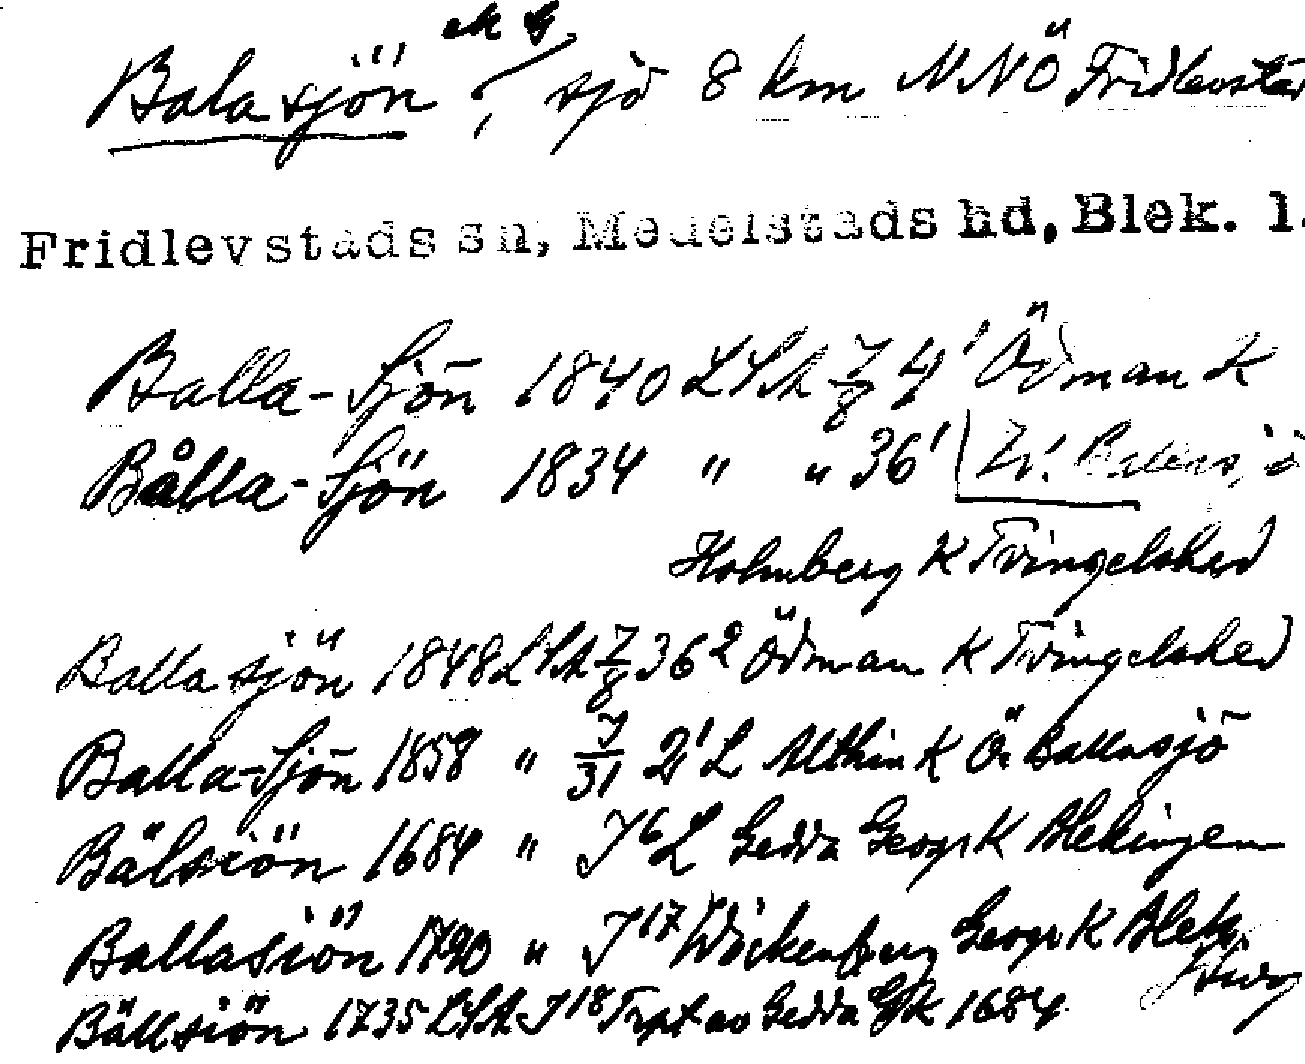 Balasjön, sjö 8 km NNÖ Fridlevstad
Fridlevstads sn, Medelstads hd, Blek. l.
Balla-Sjön 1840 LSA J/8 4¹ Ödman K
Bålla-Sjön 1834 " " 36¹ Ballasjö
Holmberg K Tvingelshed
Ballasjön 1848 LSA J/8 36² Ödman K Tvingelshed
Balla-Sjön 1858 " J/31 2¹ L Althin K Ö. Ballasjö
Bälsiön 1684 " J⁶ L Gedda Geogr K Blekingen
Ballasiön 1790 " J¹⁷ Wickenberg Geogr K Blek
Bällsiön 1735 LSA J¹⁸ Trpt av Gedda GK 1684